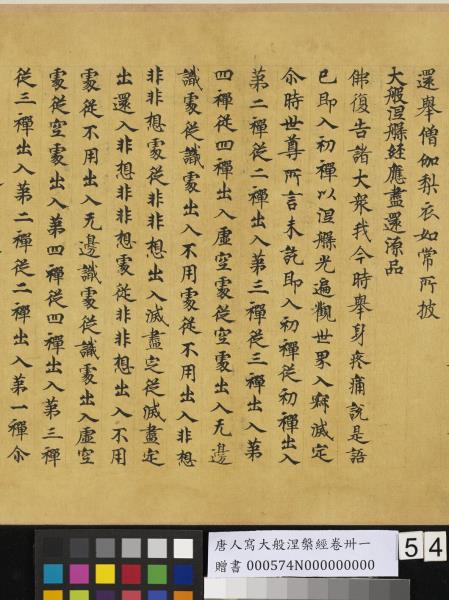 還舉僧伽梨衣如常所披
大般涅槃經應盡還源品
佛復告諸大衆我今時舉身疼痛說是語
已即入初禪以涅槃光遍觀世界入寂滅定
尒時世尊所言未訖即入初禪從初禪出入
第二禪從二禪出入第三禪從三禪出入第
四禪從四禪出入虛空處從空處出入无邊
識處從識處出入不用處從不用出入非想
非非想處從非非想出入滅盡定從滅盡定
出還入非想非非想處從非非想出入不用
處從不用出入无邊識處從識處出入虛空
處從空處出入第四禪從四禪出入第三禪
從三禪出入第二禪從二禪出入第一禪尒
唐人寫大般涅槃經卷卌一
贈書 000574N000000000
54